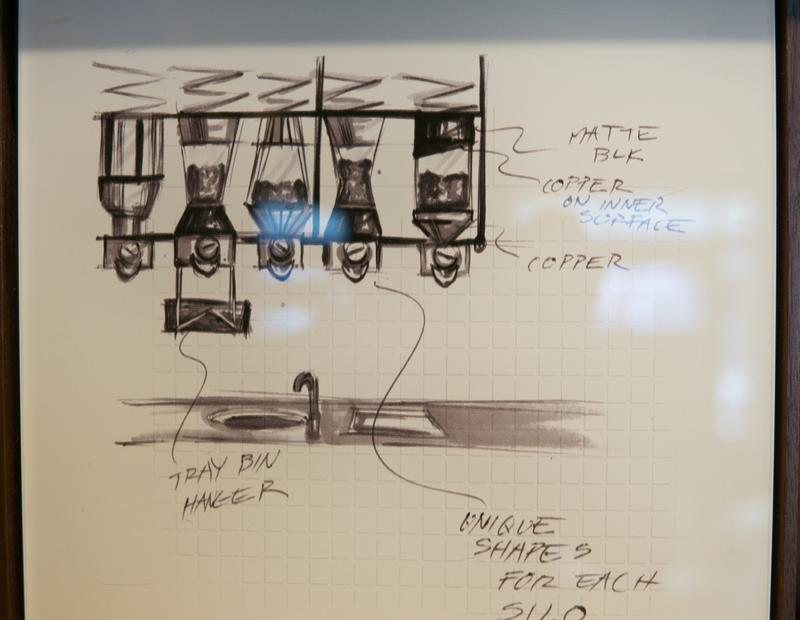 MATTE
BLK
COPPER
ON INNER
SURFACE
COPPER
TRAY BIN
HANGER
UNIQUE
SHAPES
FOR EACH
SILO